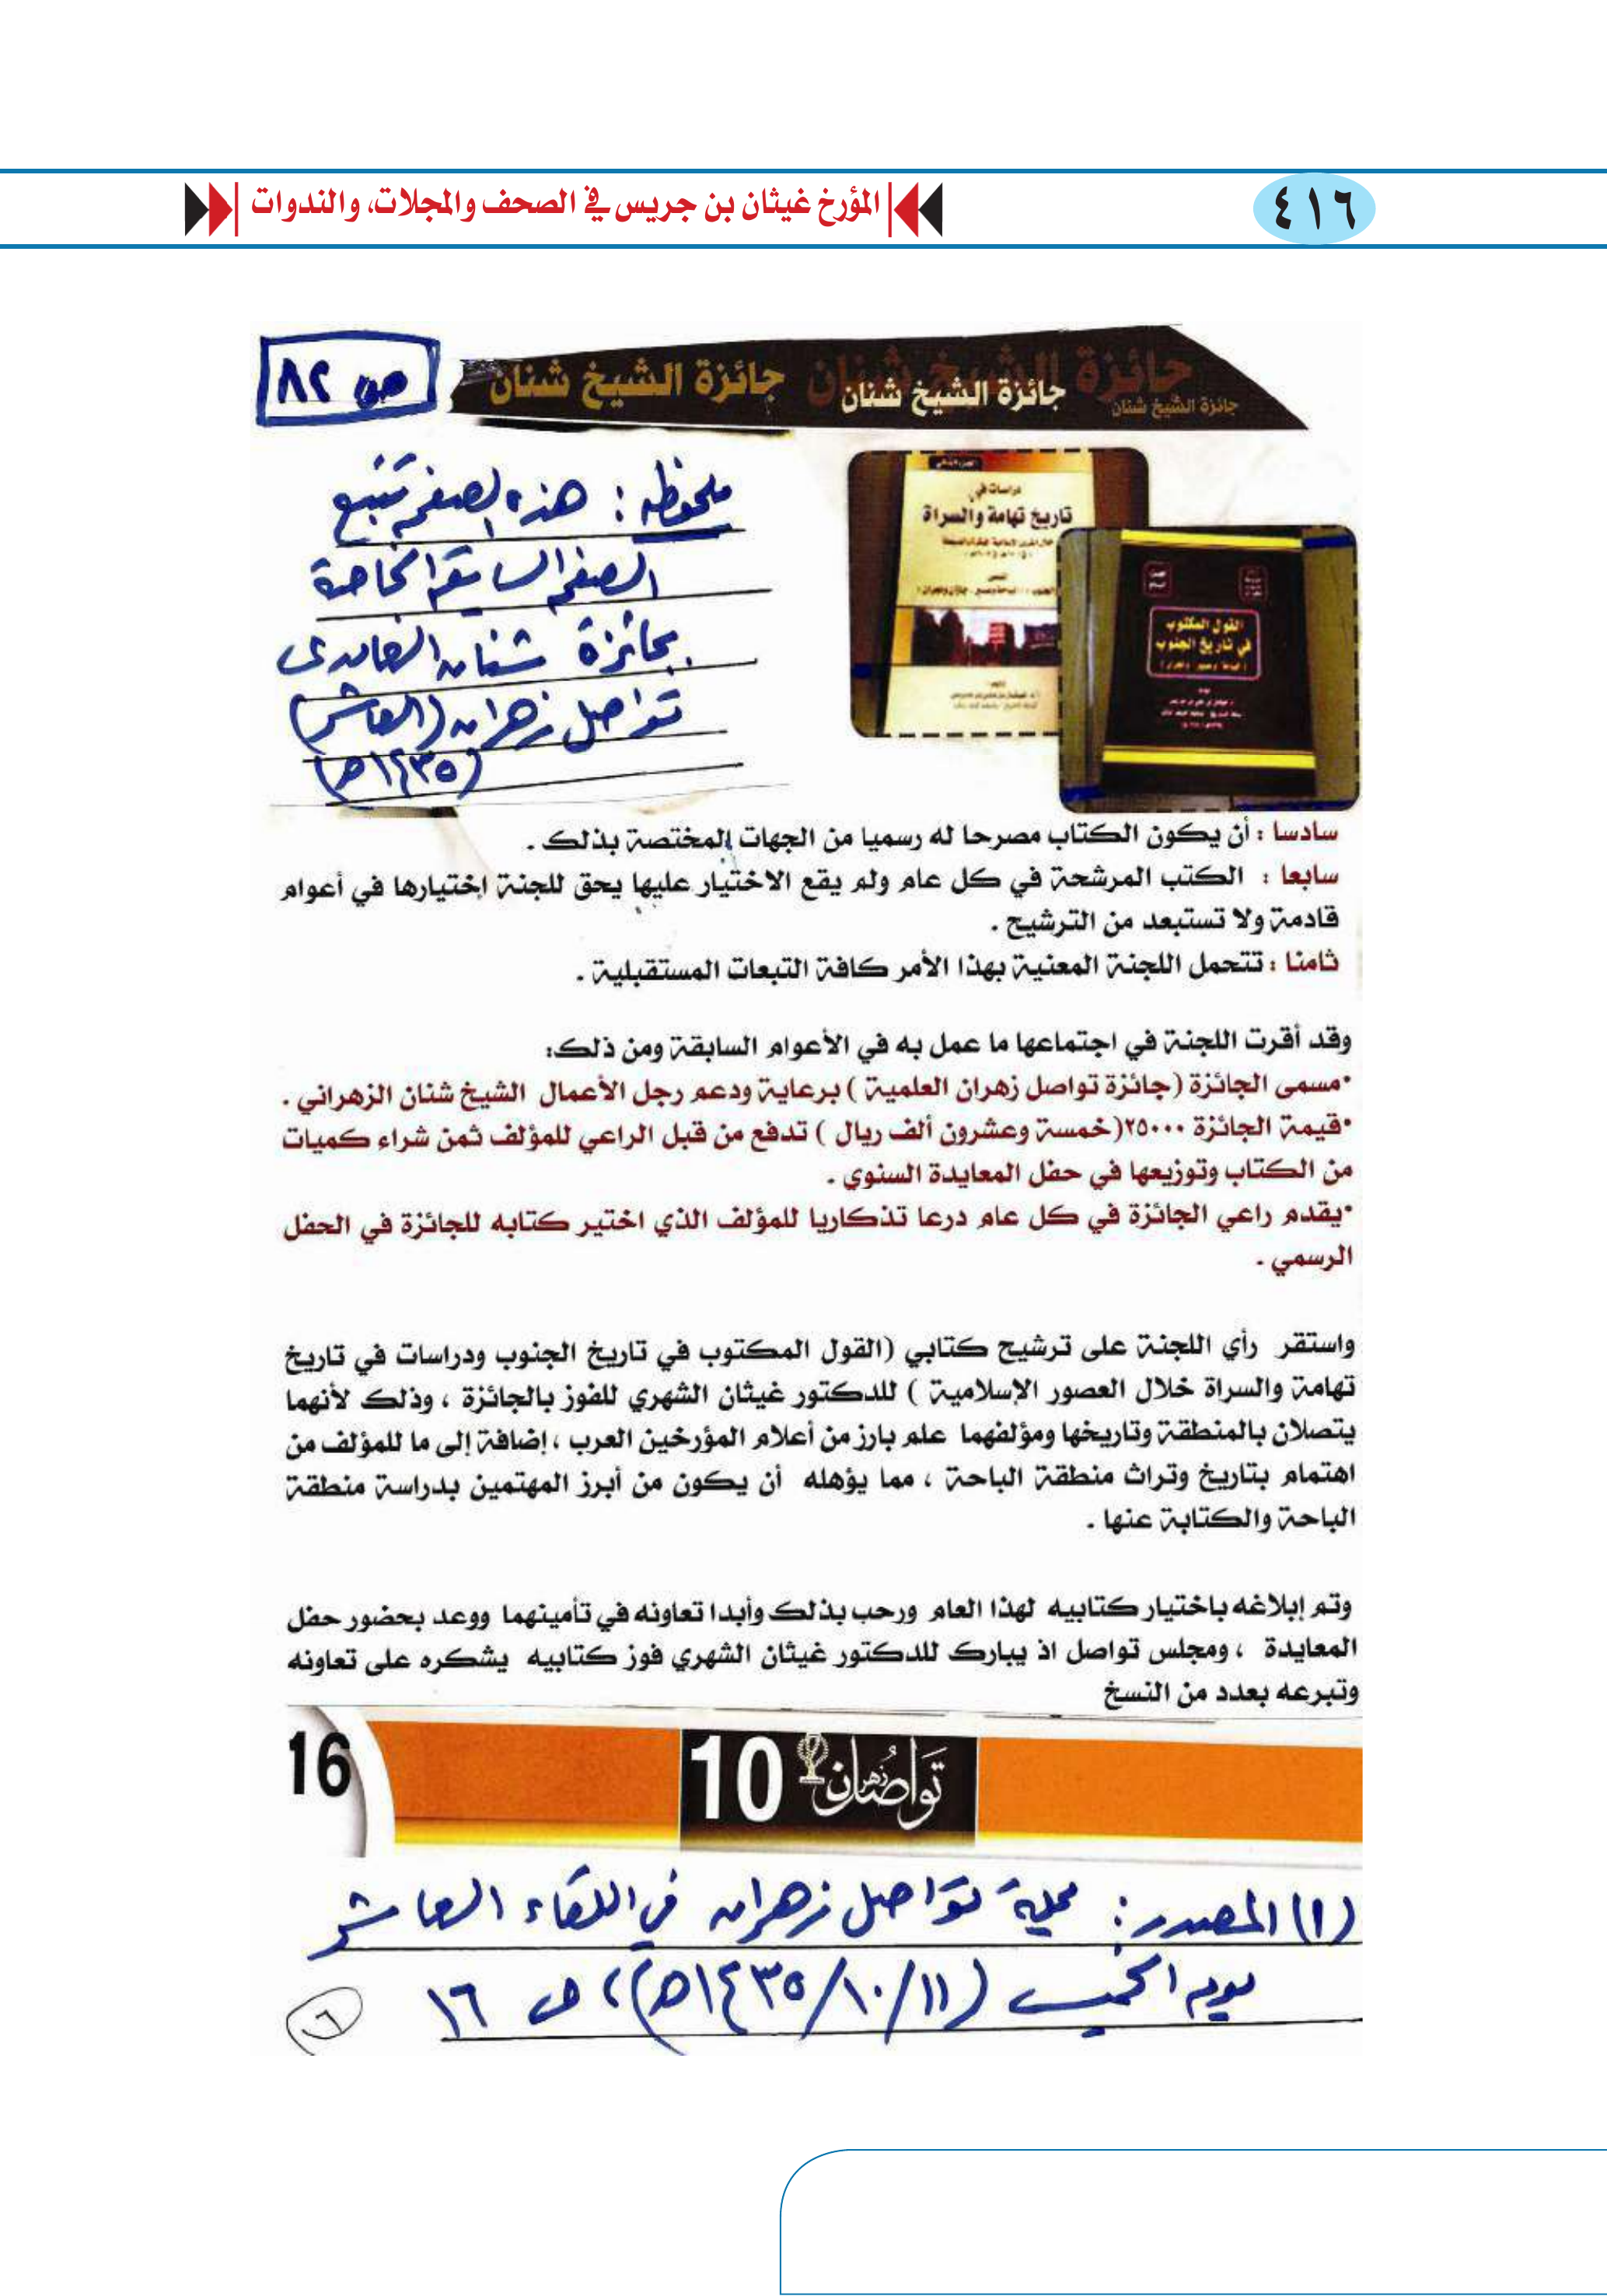 ٤١٦
المؤرخ غيثان بن جريس في الصحف والمجلات، والندوات
جائزة الشيخ شنان
جائزة الشيخ شنان
جائزة الشيخ شنان
جائزة الشيخ شنان
ص ٨٢
ملحوظة : هذه الصفحة تتبع
الصفحة السابقة الخاصة
بجائزة شنان الغامدي
تواصل زهران (العاشر)
(١٤٣٥هـ)
دراسات في
تاريخ تهامة والسراة
القول المكتوب
في تاريخ الجنوب
سادسا : أن يكون الكتاب مصرحا له رسميا من الجهات المختصة بذلك .
سابعا : الكتب المرشحة في كل عام ولم يقع الاختيار عليها يحق للجنة إختيارها في أعوام
قادمة ولا تستبعد من الترشيح .
ثامنا : تتحمل اللجنة المعنية بهذا الأمر كافة التبعات المستقبلية .
وقد أقرت اللجنة في اجتماعها ما عمل به في الأعوام السابقة ومن ذلك:
•مسمى الجائزة (جائزة تواصل زهران العلمية ) برعاية ودعم رجل الأعمال الشيخ شنان الزهراني .
•قيمة الجائزة ٢٥٠٠٠(خمسة وعشرون ألف ريال ) تدفع من قبل الراعي للمؤلف ثمن شراء كميات
من الكتاب وتوزيعها في حفل المعايدة السنوي .
•يقدم راعي الجائزة في كل عام درعا تذكاريا للمؤلف الذي اختير كتابه للجائزة في الحفل
الرسمي .
واستقر رأي اللجنة على ترشيح كتابي (القول المكتوب في تاريخ الجنوب ودراسات في تاريخ
تهامة والسراة خلال العصور الإسلامية ) للدكتور غيثان الشهري للفوز بالجائزة ، وذلك لأنهما
يتصلان بالمنطقة وتاريخها ومؤلفهما علم بارز من أعلام المؤرخين العرب ، إضافة إلى ما للمؤلف من
اهتمام بتاريخ وتراث منطقة الباحة ، مما يؤهله أن يكون من أبرز المهتمين بدراسة منطقة
الباحة والكتابة عنها .
وتم إبلاغه باختيار كتابيه لهذا العام ورحب بذلك وأبدا تعاونه في تأمينهما ووعد بحضور حفل
المعايدة ، ومجلس تواصل اذ يبارك للدكتور غيثان الشهري فوز كتابيه يشكره على تعاونه
وتبرعه بعدد من النسخ
تواصل زهران 10
16
(١) المصدر : مجلة تواصل زهران في اللقاء العاشر
يوم الخميس (١١/١٠/١٤٣٥هـ)، ص ١٦
٦